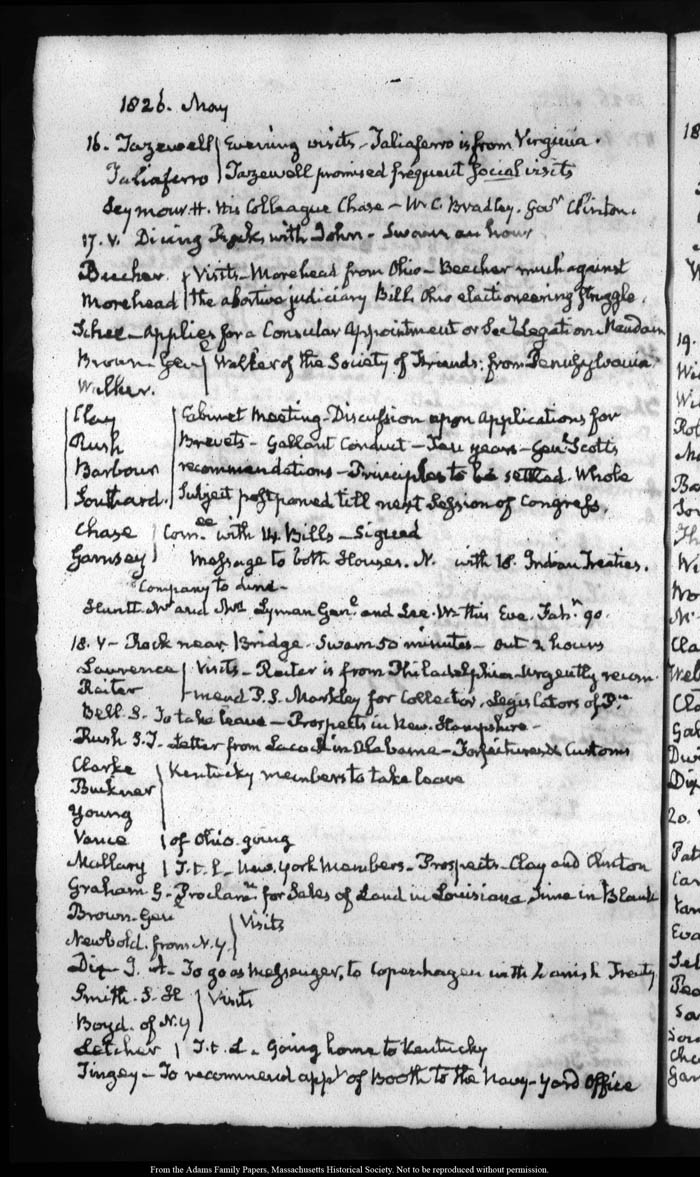 1826. May
16. Tazewell Evening visits – Taliaferro is from Virginia.
Taliaferro Tazewell promised frequent social visits
Seymour. H. His Colleague Chase – W. C. Bradley. Govr. Clinton.
17. V. Dicing Rocks with John – Swam an hour
Beecher. Visits – Morehead from Ohio – Beecher much against
Morehead the abortive judiciary Bill. Ohio electioneering struggle.
Schee – Applies for a Consular Appointment or Secy. Legation.
Brown – Genl. Walker of the Society of Friends: from Pennsylvania
Walker.
Clay Cabinet Meeting – Discussion upon applications for
Rush Brevets – Gallant Conduct – Ten years – Genl. Scott's
Barbour recommendations – Principles to be settled. Whole
Southard. Subject postponed till next Session of Congress.
Chase Comee. with 14. Bills – Signed
Garnsey Message to both Houses. N. with 18. Indian Treaties.
Company to dine –
Huntt. Mr. and Mrs. Lyman and Lee. W. this Eve.
18. V – Rock near Bridge. Swam 50 minutes – out 2 hours
Lawrence Visits – Reiter is from Philadelphia – Urgently recom-
Reiter mend P. S. Markley for Collector. Legislators of Pa.
Bell. S. To take leave – Prospects in New-Hampshire –
Rush S. T. – Letter from in Alabama – Forfeitures & Customs
Clarke Kentucky members to take leave
Buckner
Young
Vance of Ohio. going
Mallary T. t. L – New. York Members – Prospects – Clay and Clinton
Graham. G – Proclamn. for Sales of Land in Louisiana. Time in Blank
Brown – Genl. Visits
Newbold. from N. Y.
Dix – J. A – To go as Messenger, to Copenhagen with Danish Treaty
Smith. S. Visits
Boyd. of N. Y
Letcher T. t. L – Going home to Kentucky
Tingey – To recommend appt. of Booth to the Navy-Yard Office
From the Adams Family Papers, Massachusetts Historical Society. Not to be reproduced without permission.